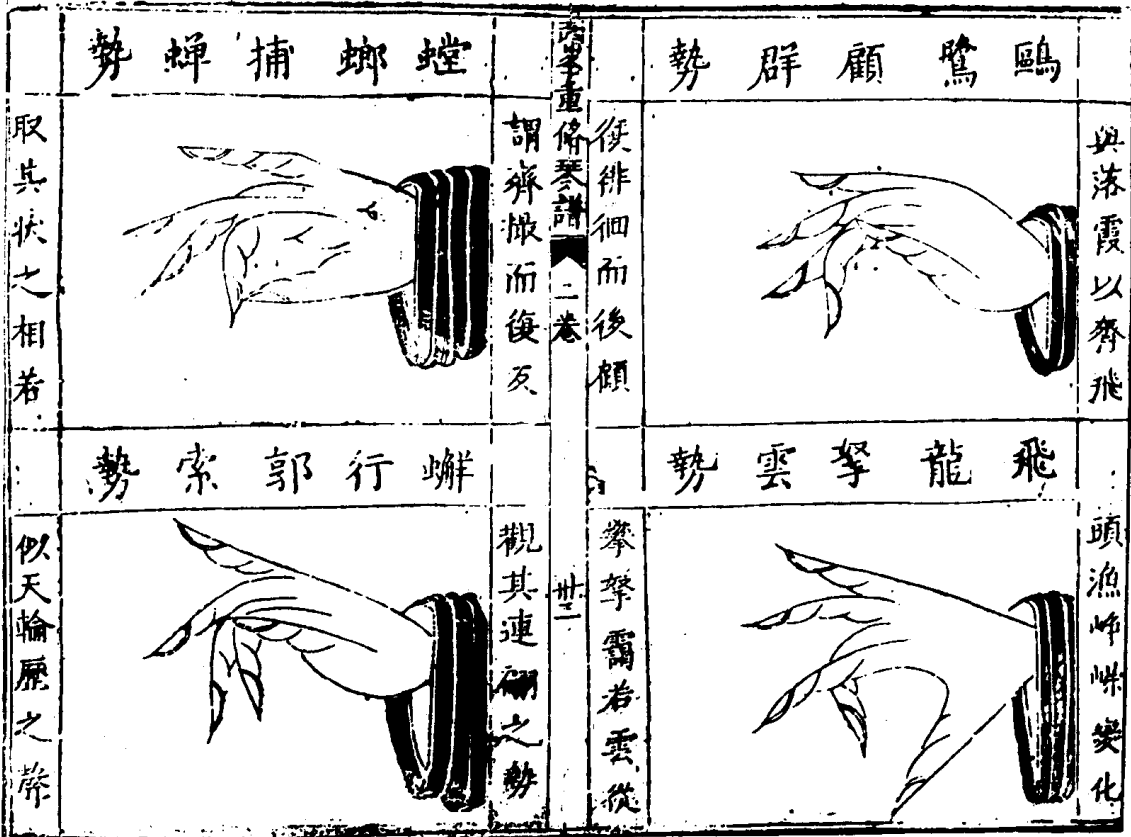 鷗鷺顧群勢
與落霞以齊飛
復徘徊而後顧
飛龍拏雲勢
頭漁崢嶸變化
拏靄若雲從
重修琴譜
二卷
卅三
螳螂捕蝉勢
謂齊澈而復反
取其狀之相若
蠏行郭索勢
觀其連翩之勢
似天輪歷之聲